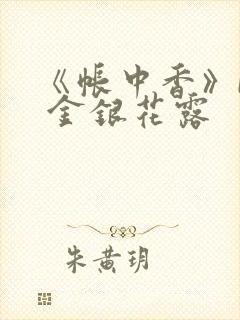 《帳中香》
金銀花露
朱黄玥